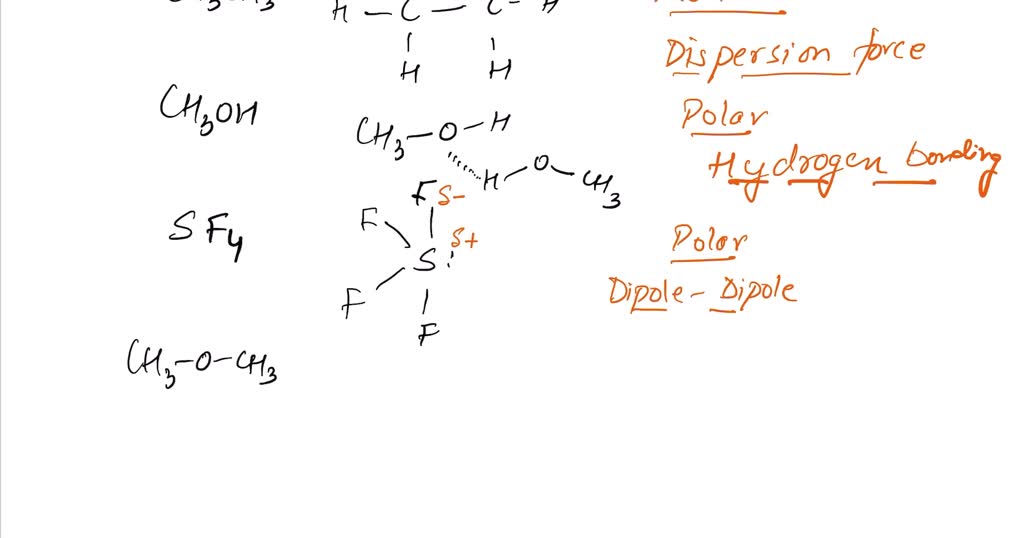 H – C – C – H
H H
Dispersion force
CH3OH
CH3–O–H
Polar
H–O–CH3
Hydrogen bonding
SF4
F S-
F
S+
S:
F
F
Polar
Dipole - Dipole
CH3-O-CH3